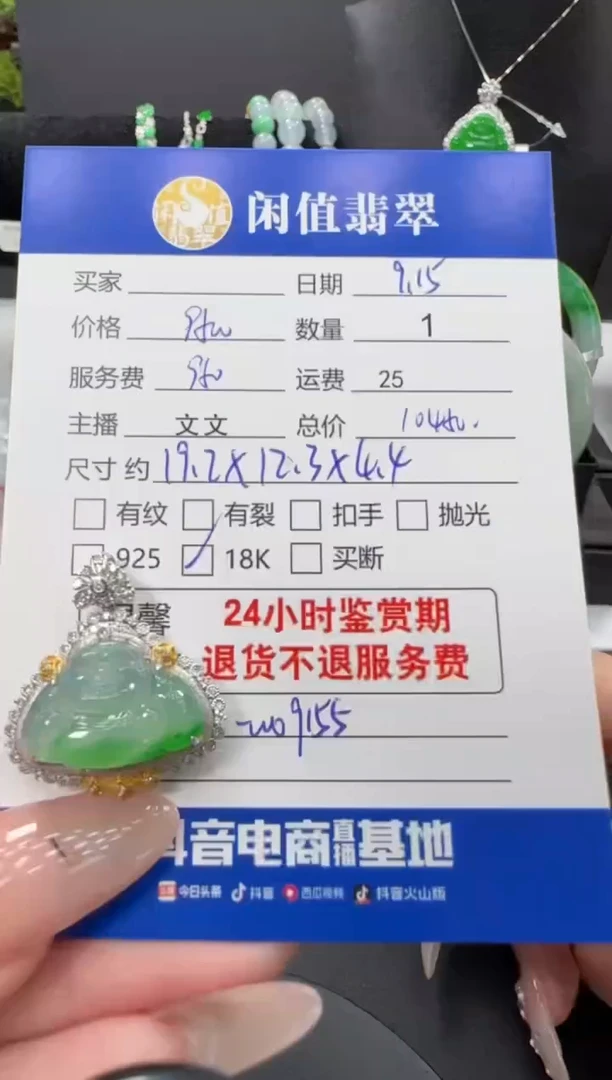 闲值翡翠
买家 日期 9.15
价格 数量 1
服务费 运费 25
主播 文文 总价
尺寸 约 19.2X12.3X4.4
有纹 有裂 扣手 抛光
925 18K 买断
馨 24小时鉴赏期
退货不退服务费
9155
音电商直播基地
今日头条 抖音 西瓜视频 抖音火山版